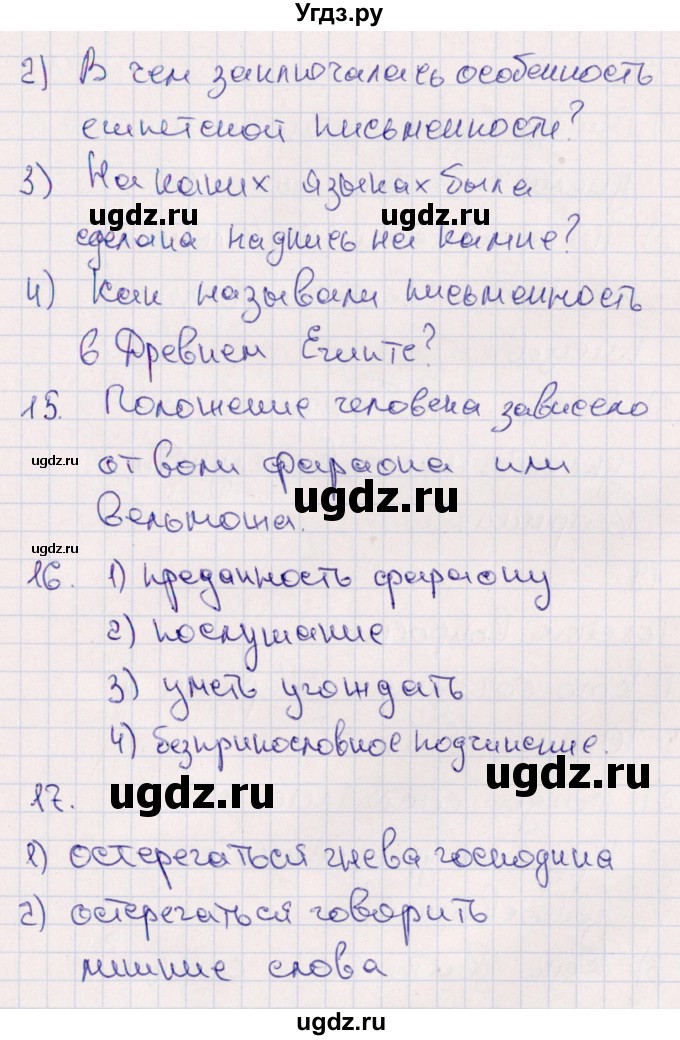 Угдз.ру
2) В чем заключалась особенность
египетской письменности?
3) На каких языках была
ugdz.ru ugdz.ru
сделана надпись на камне?
4) Как называли письменность
в Древнем Египте?
15. Положение человека зависело
ugdz.ru от воли фараона или
ugdz.ru
Вельможа.
ugdz.ru
16. 1) преданность фараону
2) послушание
3) уметь угождать
4) безприкословное подчинение.
ugdz.ru
17. ugdz.ru
1) остерегаться гнева господина
2) остерегаться говорить
лишние слова
ugdz.ru